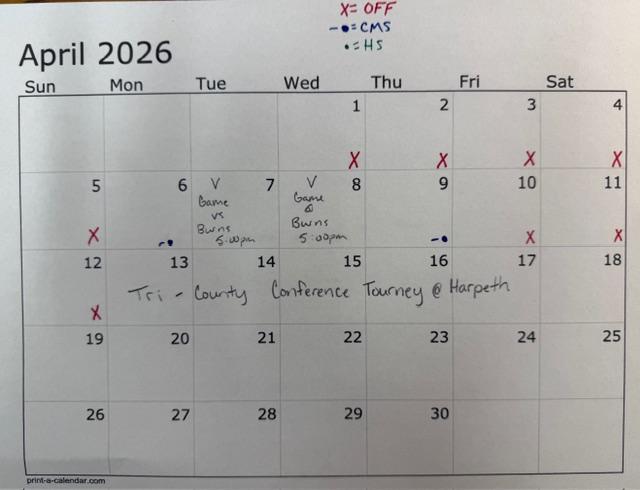 X = OFF
-• = CMS
• = HS
April 2026
Sun Mon Tue Wed Thu Fri Sat
1 2 3 4
X X X X
5 6 7 8 9 10 11
V
Game
vs
Burns
5:00pm
V
Game
@
Burns
5:00pm
X -• -• X X
12 13 14 15 16 17 18
Tri - County Conference Tourney @ Harpeth
X
19 20 21 22 23 24 25
26 27 28 29 30
print-a-calendar.com